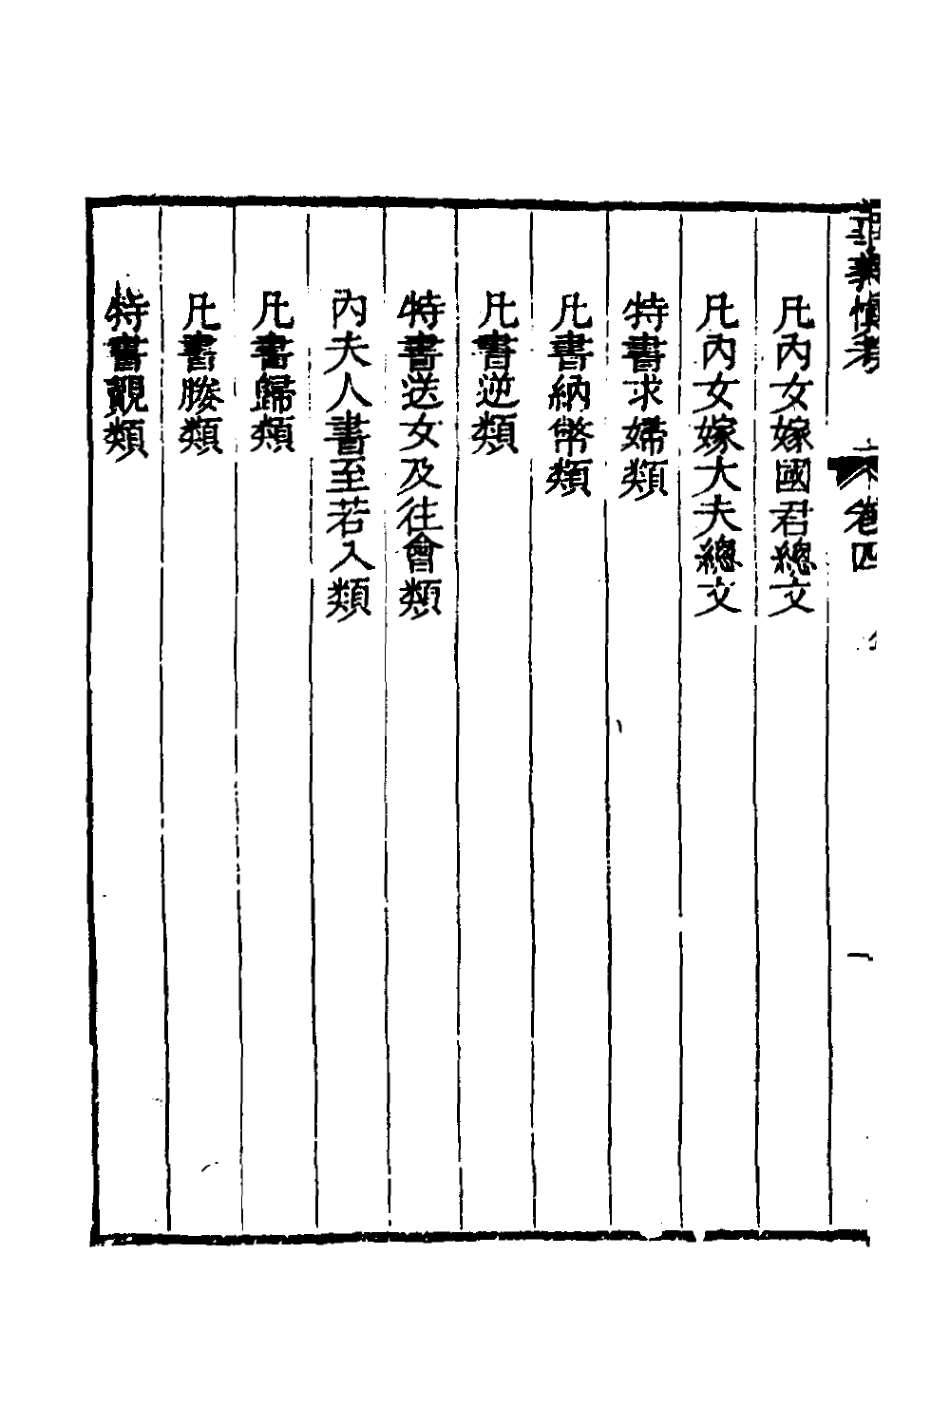 卷四
一
凡內女嫁國君總文
凡內女嫁大夫總文
特書求婦類
凡書納幣類
凡書逆類
特書送女及往會類
內夫人書至若入類
凡書歸類
凡書媵類
特書覿類